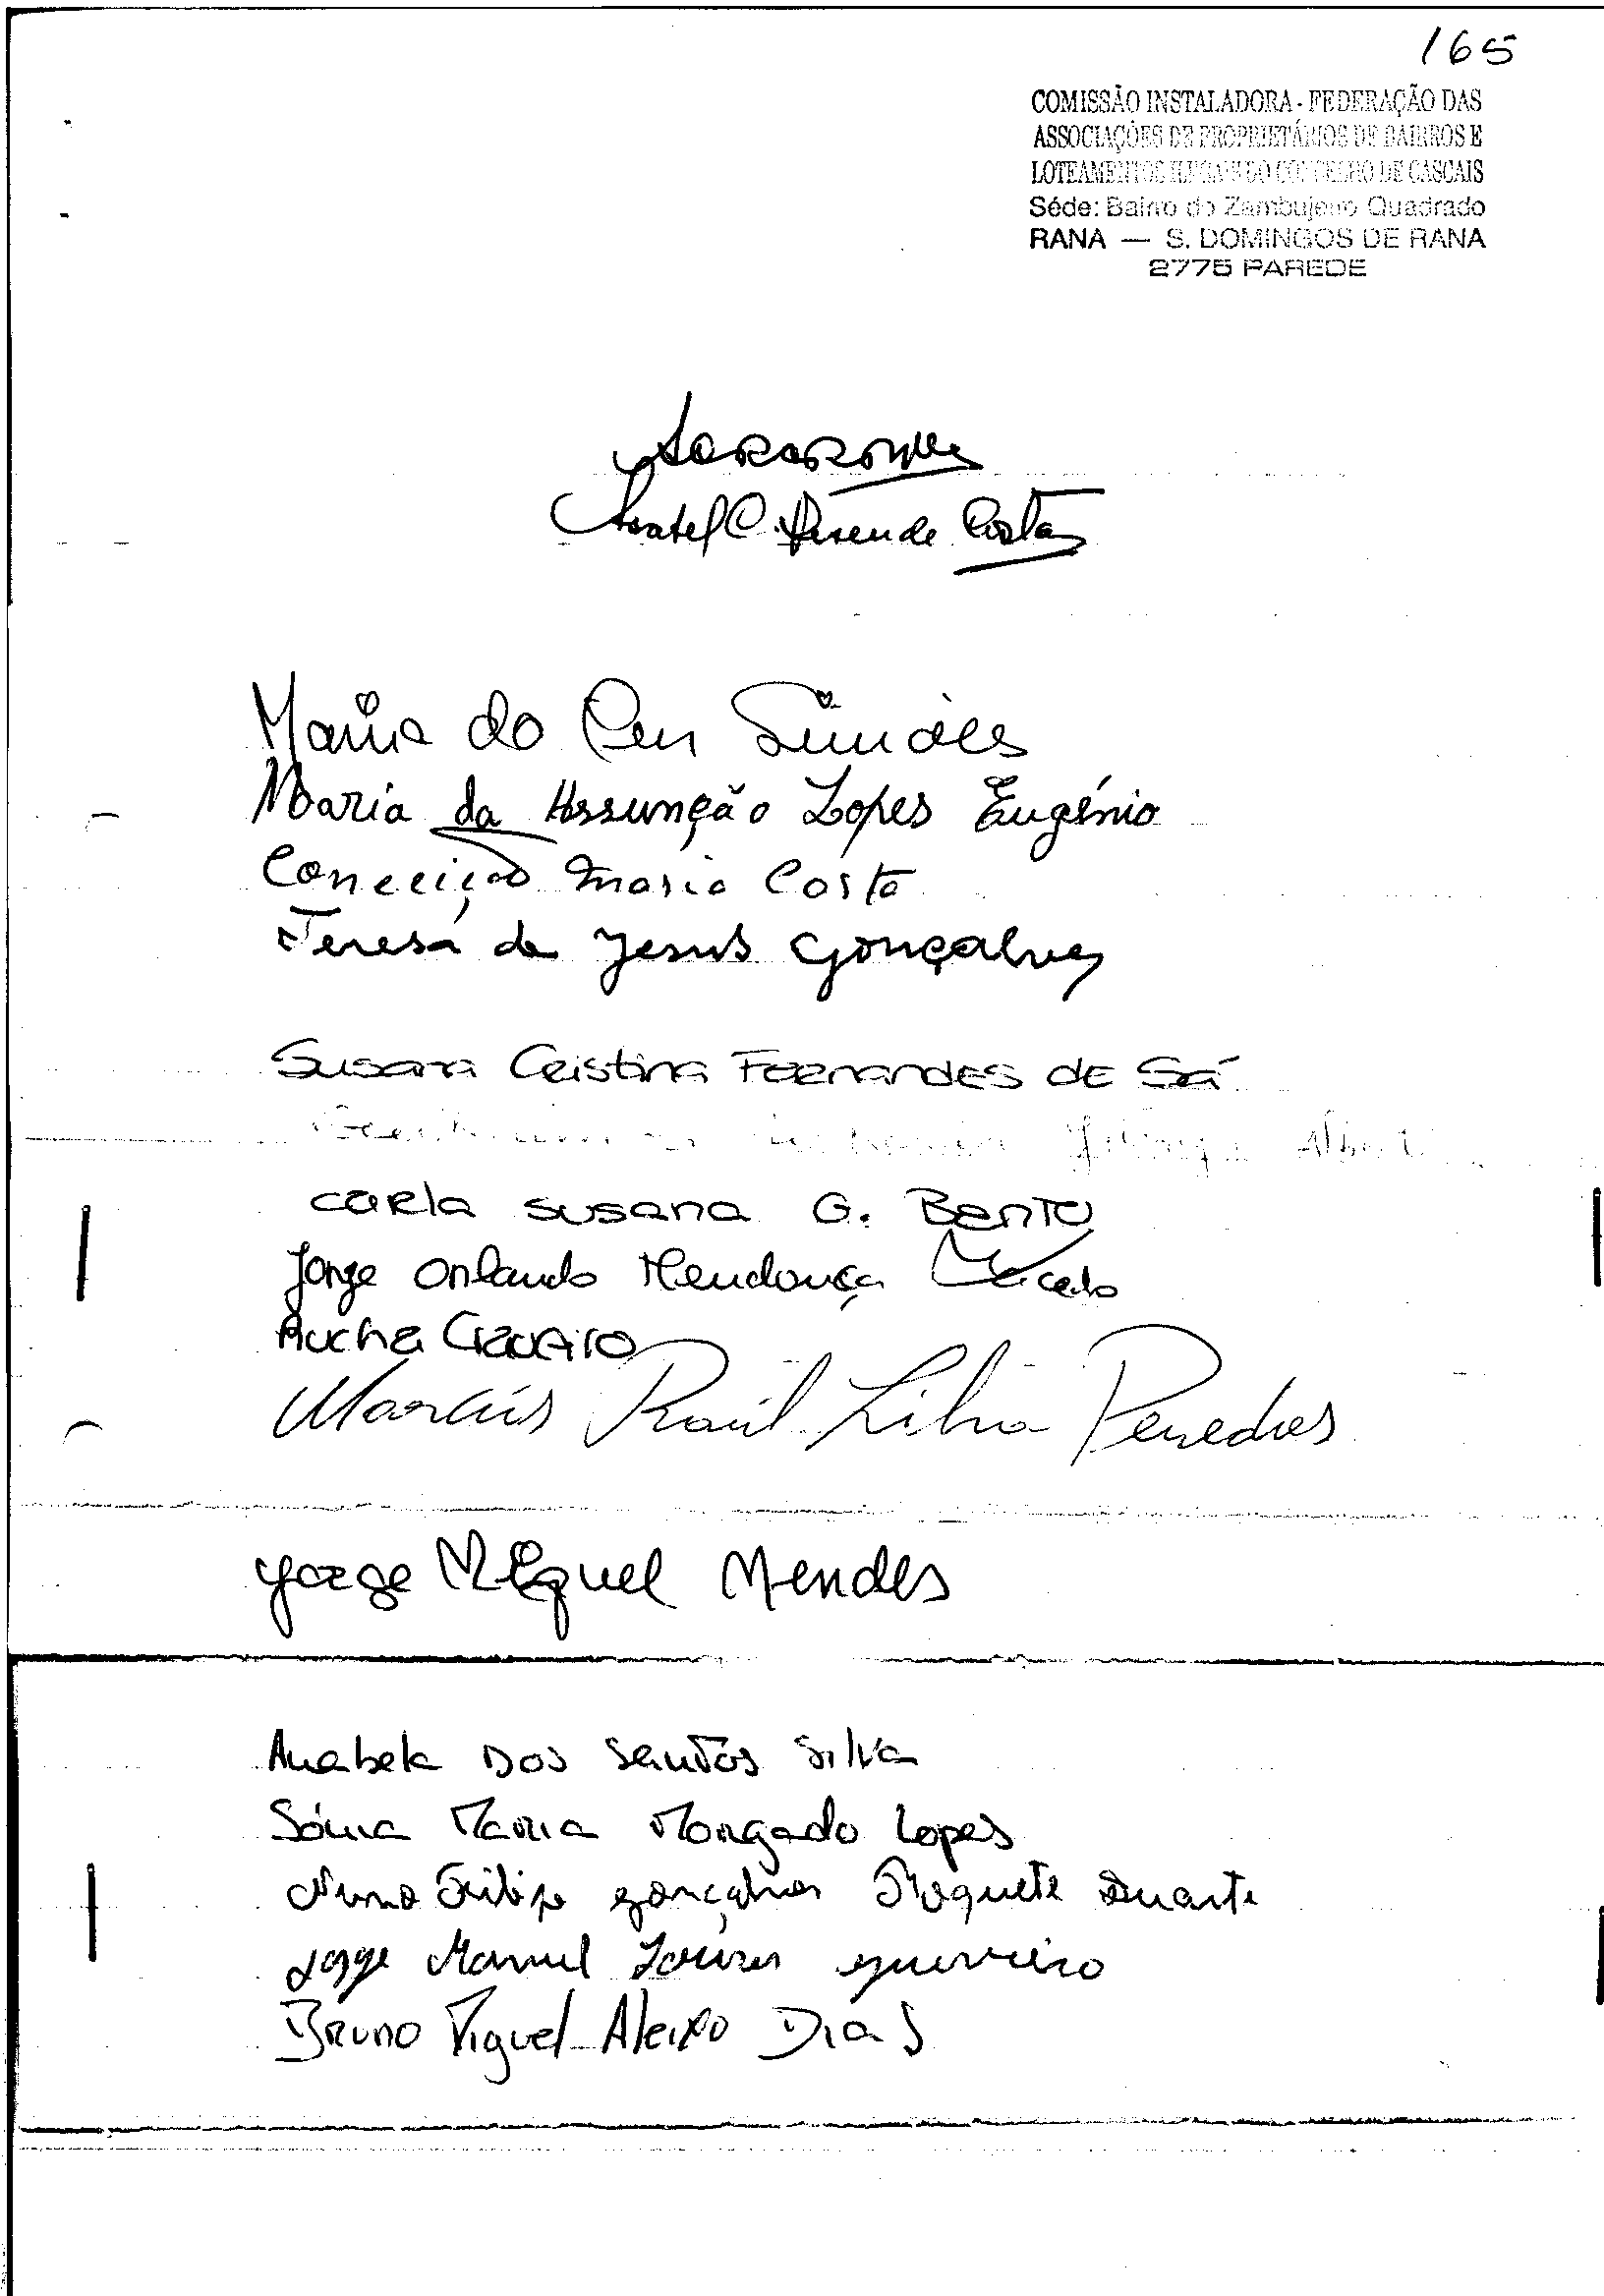 165
COMISSÃO INSTALADORA - FEDERAÇÃO DAS
ASSOCIAÇÕES DE PROPRIETÁRIOS DE BAIRROS E
LOTEAMENTOS ILEGAIS DO CONCELHO DE CASCAIS
Séde: Bairro do Zambujeiro Quadrado
RANA — S. DOMINGOS DE RANA
2775 PAREDE
Isabel C. Resende Costa
Maria do Céu Simões
Maria da Assunção Lopes Eugénio
Conceição Maria Costa
Teresa de Jesus Gonçalves
Susana Cristina Fernandes de Sá
Carla Susana G. Bento
Jorge Orlando Mendonça Macedo
Marcus Raúl Penedos
Jorge Miguel Mendes
Anabela dos Santos Silva
Sónia Maria Morgado Lopes
Nuno Filipe Gonçalves Roquete Duarte
Jorge Manuel guerreiro
Bruno Miguel Aleixo Dias